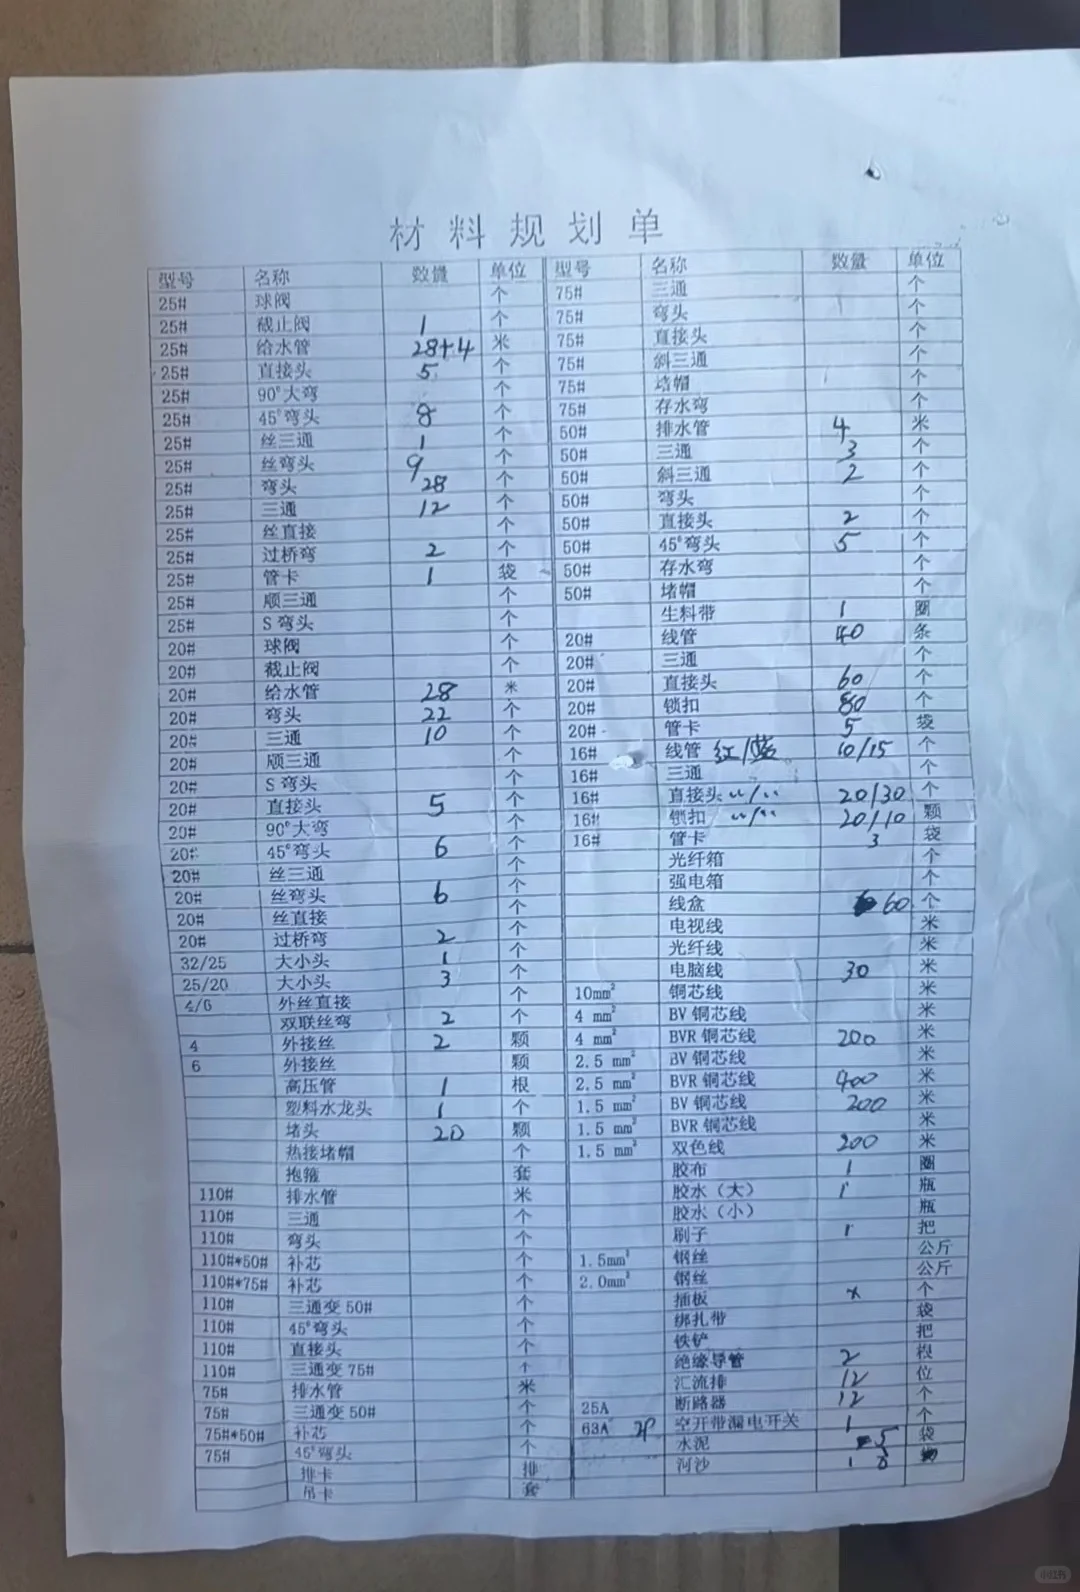 材料规划单
型号 名称 数量 单位 型号 名称 数量 单位
25# 球阀 个 75# 三通 个
25# 截止阀 1 个 75# 弯头 个
25# 给水管 28+4 米 75# 直接头 个
25# 直接头 5 个 75# 斜三通 个
25# 90°大弯 个 75# 堵帽 个
25# 45°弯头 8 个 75# 存水弯 个
25# 丝三通 1 个 50# 排水管 4 米
25# 丝弯头 9 个 50# 三通 3 个
25# 弯头 28 个 50# 斜三通 2 个
25# 三通 12 个 50# 弯头 个
25# 丝直接 个 50# 直接头 2 个
25# 过桥弯 2 个 50# 45°弯头 5 个
25# 管卡 1 袋 50# 存水弯 个
25# 顺三通 个 50# 堵帽 个
25# S弯头 个 生料带 1 圈
20# 球阀 个 20# 线管 40 条
20# 截止阀 个 20# 三通 个
20# 给水管 28 米 20# 直接头 60 个
20# 弯头 22 个 20# 锁扣 80 个
20# 三通 10 个 20# 管卡 5 袋
20# 顺三通 个 16# 线管 红/蓝 10/15 个
20# S弯头 个 16# 三通 个
20# 直接头 5 个 16# 直接头 〃/〃 20/30 个
20# 90°大弯 个 16# 锁扣 〃/〃 20/10 颗
20# 45°弯头 6 个 16# 管卡 3 袋
20# 丝三通 个 光纤箱 个
20# 丝弯头 6 个 强电箱 个
20# 丝直接 个 线盒 60 个
20# 过桥弯 2 个 电视线 米
32/25 大小头 1 个 光纤线 米
25/20 大小头 3 个 电脑线 30 米
4/6 外丝直接 个 10mm² 铜芯线 米
双联丝弯 2 个 4 mm² BV铜芯线 米
4 外接丝 2 颗 4 mm² BVR铜芯线 200 米
6 外接丝 颗 2.5 mm² BV铜芯线 米
高压管 1 根 2.5 mm² BVR铜芯线 400 米
塑料水龙头 1 个 1.5 mm² BV铜芯线 200 米
堵头 20 颗 1.5 mm² BVR铜芯线 米
热接堵帽 个 1.5 mm² 双色线 200 米
抱箍 套 胶布 1 圈
110# 排水管 米 胶水（大） 1 瓶
110# 三通 个 胶水（小） 瓶
110# 弯头 个 刷子 1 把
110#*50# 补芯 个 1.5mm² 钢丝 公斤
110#*75# 补芯 个 2.0mm² 钢丝 公斤
110# 三通变50# 个 插板 x 个
110# 45°弯头 个 绑扎带 袋
110# 直接头 个 铁铲 把
110# 三通变75# 个 绝缘导管 2 根
75# 排水管 米 汇流排 12 位
75# 三通变50# 个 25A 断路器 12 个
75#*50# 补芯 个 63A 2P 空开带漏电开关 1 个
75# 45°弯头 个 水泥 5 袋
排卡 排 河沙
吊卡 套
小红书